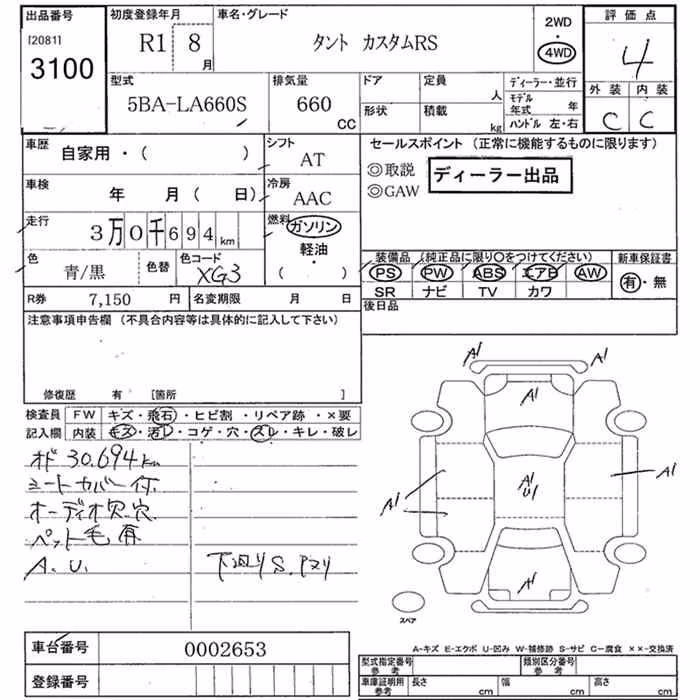 出品番号
[2081]
3100
初度登録年月
R1 8 月
車名・グレード
タント カスタムRS
2WD
・
4WD
評価点
4
外装 内装
C C
型式
5BA-LA660S
排気量
660 CC
ドア
形状
定員 人
積載 kg
ディーラー・並行
モデル年式 年
ハンドル 左・右
車歴 自家用・( )
シフト AT
車検 年 月( 日)
冷房 AAC
走行 3万0千694km
燃料 ガソリン
軽油
・
( )
色 青/黒 色替
色コード XG3
R券 7,150 円
名変期限 月 日
セールスポイント (正常に機能するものに限ります)
◎取説
◎GAW
ディーラー出品
装備品 (純正品に限り○をつけてください)
PS PW ABS エアB AW
SR ナビ TV カワ
新車保証書
有・無
後日品
注意事項申告欄 (不具合内容等は具体的に記入して下さい)
修復歴 有 [箇所 ]
検査員 FW キズ・飛石・ヒビ割・リペア跡・×要
記入欄 内装 キズ・汚レ・コゲ・穴・スレ・キレ・破レ
オド 30.694km
シートカバー付
オーディオ欠.穴
ペット毛有
A.U.
下廻りS.Pヌリ
A1 A1
A1
A1 A1 A1
U1
A1
A1
スペア
A-キズ E-エクボ U-凹み W-補修跡 S-サビ C-腐食 ××-交換済
車台番号 0002653
登録番号
型式指定番号 参考
類別区分番号 参考
車庫証明用 参考 長さ cm 幅 cm 高さ cm